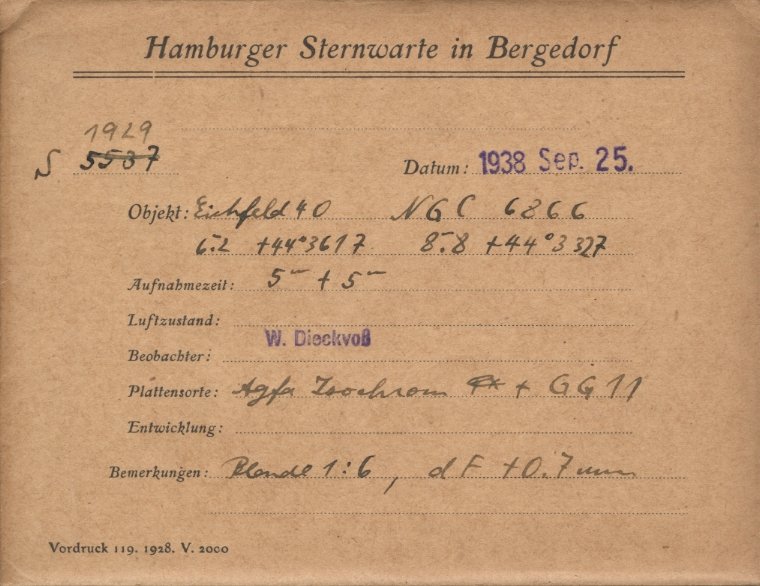 Hamburger Sternwarte in Bergedorf
1929
S 5537
Datum: 1938 Sep. 25.
Objekt: Eichfeld 40 NGC 6866
6.2 +44°3617 8.8 +44°3327
Aufnahmezeit: 5m + 5m
Luftzustand:
W. Dieckvoß
Beobachter:
Plattensorte: Agfa Isochrom + GG 11
Entwicklung:
Bemerkungen: Blende 1:6, dF +0.7mm
Vordruck 119. 1928. V. 2000